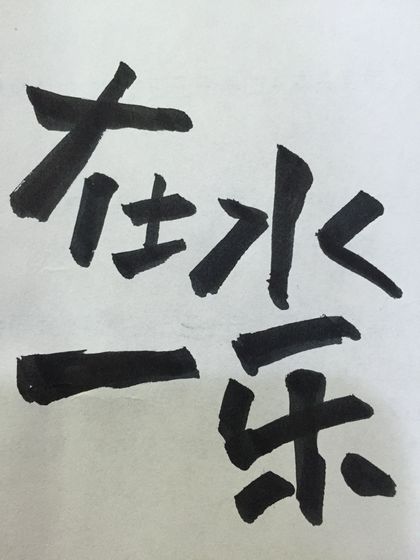 在水
一乐